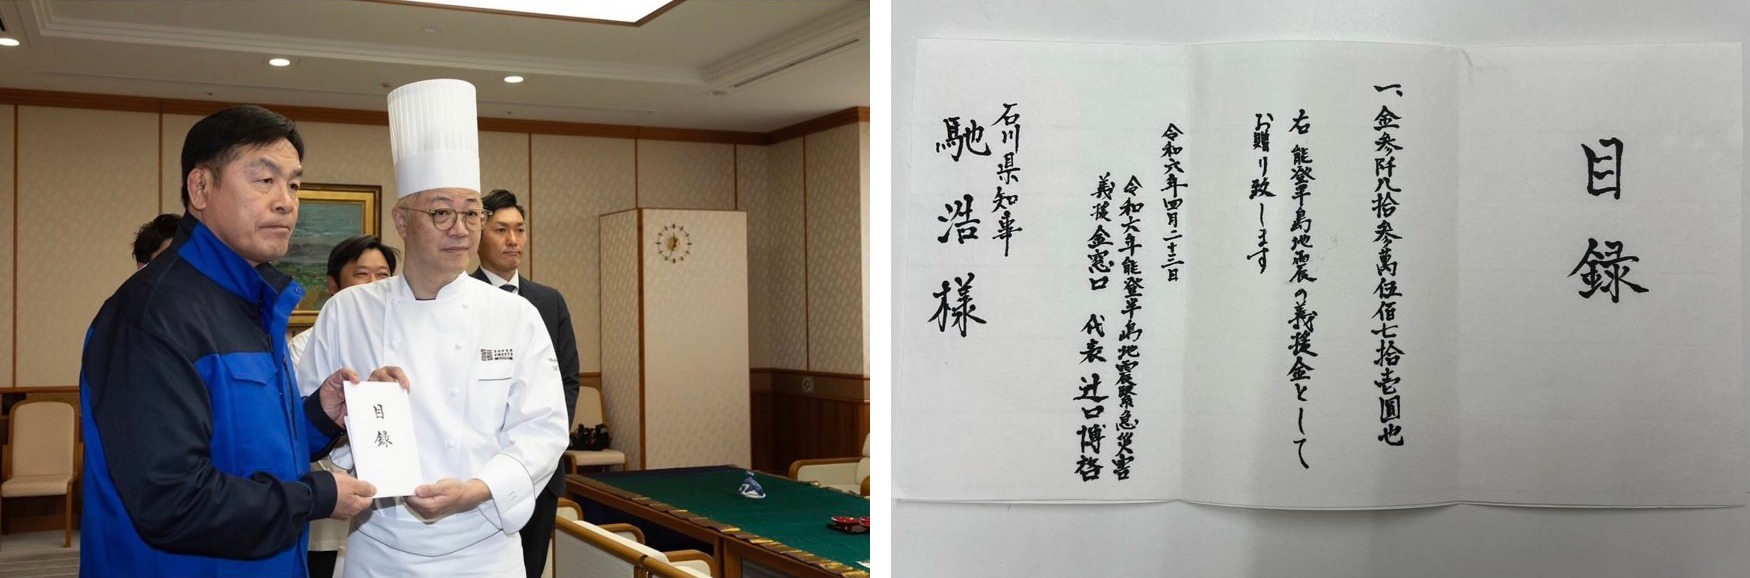 目録
SUPER
SWEETS
目録
一、金参阡八拾参萬伍佰七拾壱圓也
右 能登半島地震の義援金として
お贈り致します
令和六年四月二十三日
令和六年能登半島地震緊急災害
義援金窓口 代表 辻口博啓
石川県知事
馳 浩 様